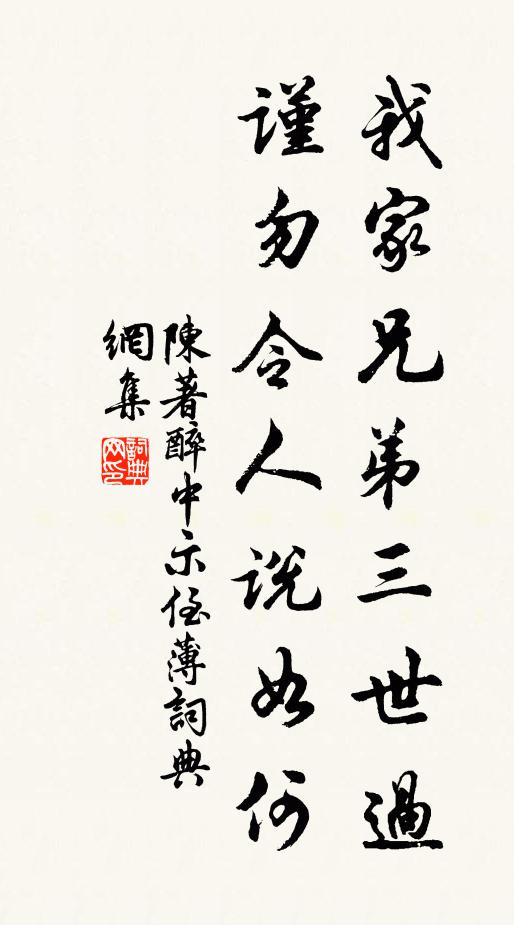 我家兄弟三世過
謹勿令人説如何
陳著醉中示侄薄詞典
網集
詞典網印